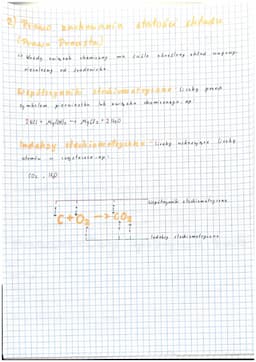 2) Prawo zachowania stałości składu
(Prawo Prousta)
↳ Każdy związek chemiczny ma ściśle określony skład wagowy,
niezależny od środowiska.
Współczynniki stechiometryczne liczby przed
symbolem pierwiastka lub związku chemicznego, np.
2HCl + Mg(OH)₂ → MgCl₂ + 2H₂O
Indeksy stechiometryczne liczby wskazujące liczbę
atomów w cząsteczce, np.
CO₂, H₂O
Współczynniki stechiometryczne
C + O₂ → CO₂
Indeksy stechiometryczne